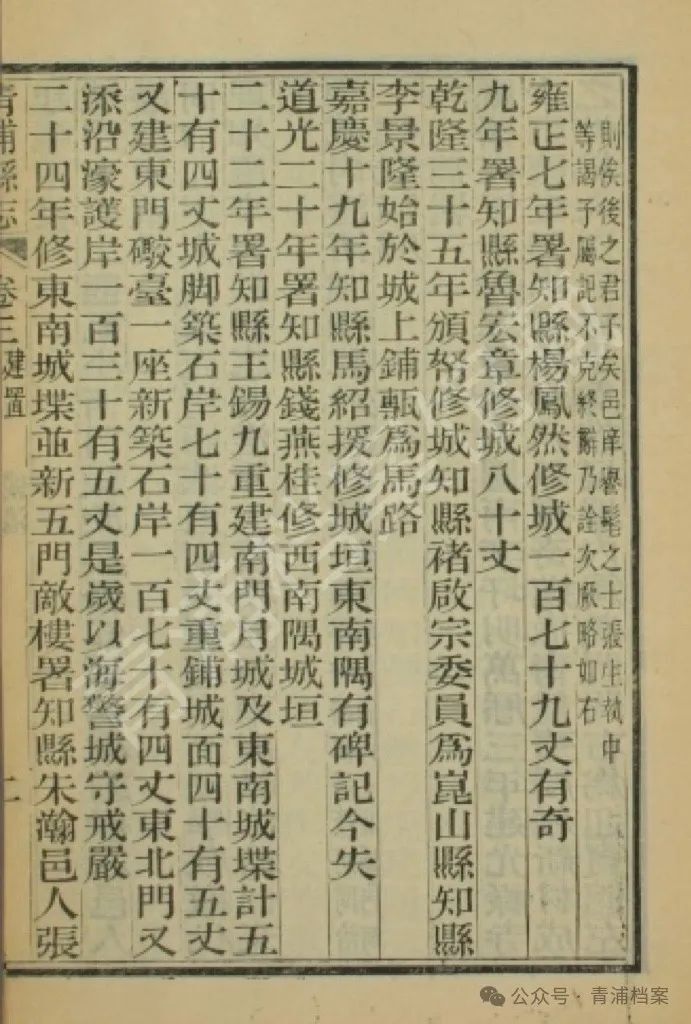 則俟後之君子矣邑庠譽髦之士張生執中
等謁予屬記不克終辭乃詮次厥略如右
雍正七年署知縣楊鳳然修城一百七十九丈有奇
九年署知縣魯宏章修城八十丈
乾隆三十五年頒帑修城知縣褚啟宗委員爲崑山縣知縣
李景隆始於城上鋪甎爲馬路
嘉慶十九年知縣馬紹援修城垣東南隅有碑記今失
道光二十年署知縣錢燕桂修西南隅城垣
二十二年署知縣王錫九重建南門月城及東南城堞計五
十有四丈城脚築石岸七十有四丈重鋪城面四十有五丈
又建東門礮臺一座新築石岸一百七十有四丈東北門又
添沿濠護岸一百三十有五丈是歲以海警城守戒嚴
二十四年修東南城堞並新五門敵樓署知縣朱瀚邑人張
青浦縣志 卷三 建置
公众号·青浦档案